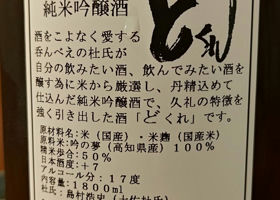 純米吟醸酒
どくれ
酒をこよなく愛する
呑んべえの杜氏が
自分の飲みたい酒、飲んでみたい酒を
醸す為に米から厳選し、丹精込めて
仕込んだ純米吟醸酒で、久礼の特徴を
強く引き出した酒「どくれ」です。
原材料名：米（国産）・米麹（国産米）
原料米：吟の夢（高知県産）100％
精米歩合：50％
日本酒度：＋7
アルコール分：17度
内容量：1800ml
杜氏名：島村浩史（土佐杜氏）